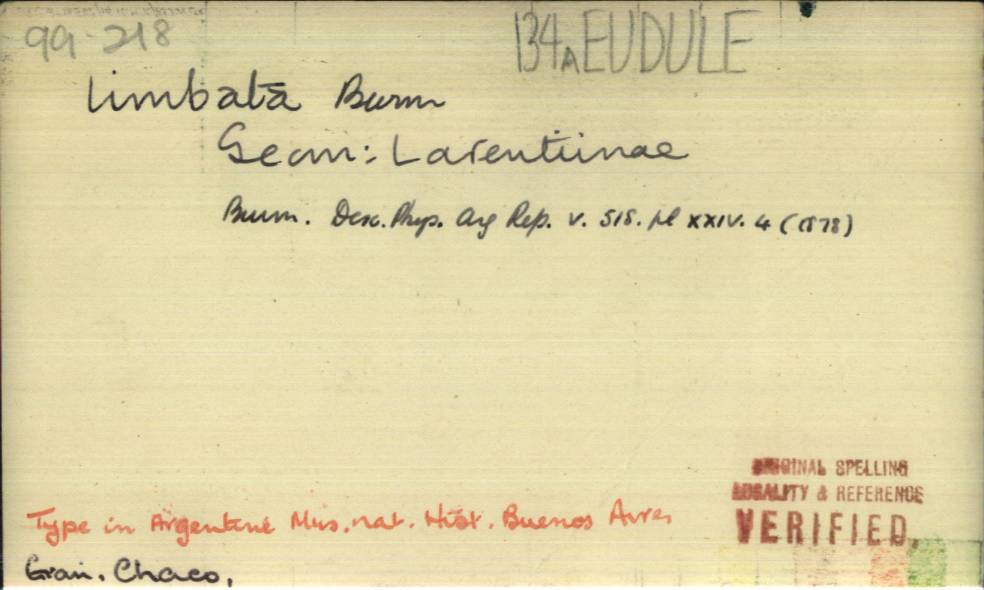 99-218
134A EUDULE
limbata Burm
Geom: Larentiinae
Burm. Desc. Phys. Arg Rep. v. 515. pl XXIV. 4 (1878)
ORIGINAL SPELLING
LOCALITY & REFERENCE
VERIFIED.
Type in Argentine Mus. nat. Hist. Buenos Aires
Gran. Chaco.